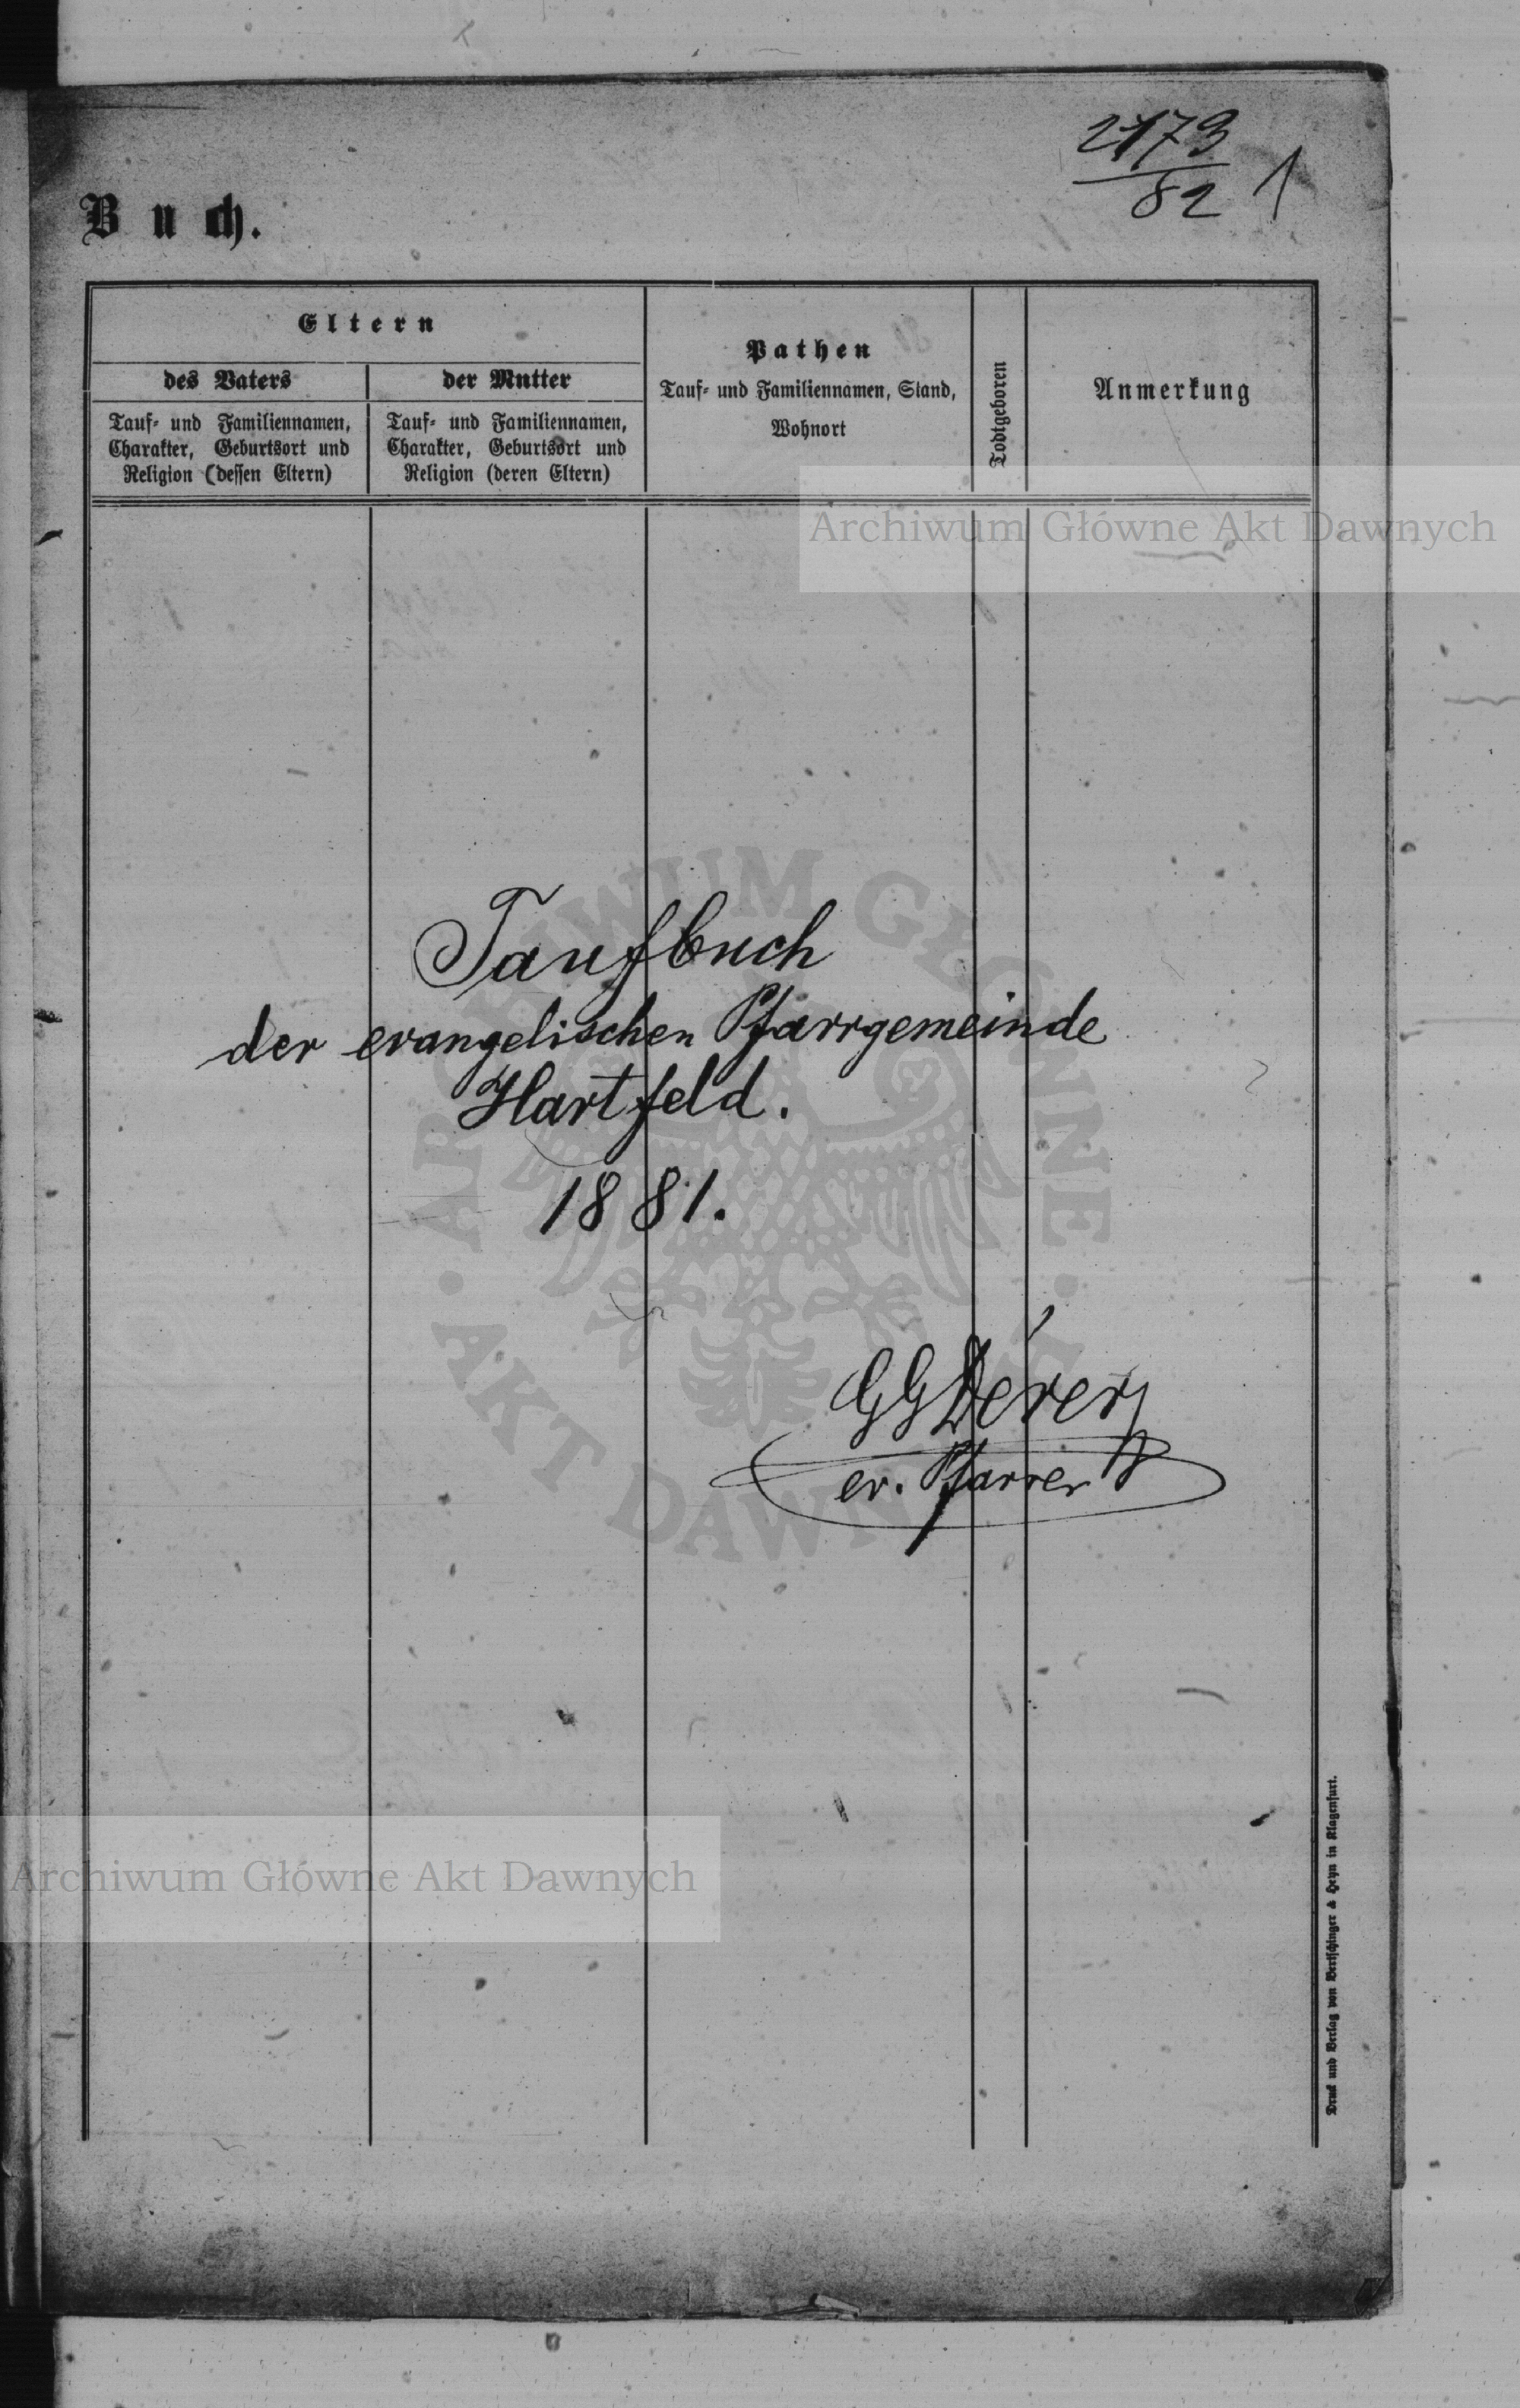 2173
82
1
Buch.
Eltern
des Vaters
der Mutter
Tauf- und Familiennamen,
Charakter, Geburtsort und
Religion (dessen Eltern)
Tauf- und Familiennamen,
Charakter, Geburtsort und
Religion (deren Eltern)
Pathen
Tauf- und Familiennamen, Stand,
Wohnort
Todtgeboren
Anmerkung
Archiwum Główne Akt Dawnych
Taufbuch
der evangelischen Pfarrgemeinde
Hartfeld.
1881.
GG
ev. Pfarrer
Archiwum Główne Akt Dawnych
Druck und Verlag von Bertschinger & Heyn in Klagenfurt.
ARCHIWUM GŁÓWNE · AKT DAWNYCH ·